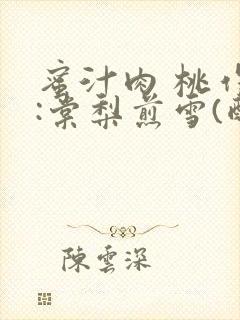 蜜汁肉桃作
:棠梨煎雪(
陳雲深